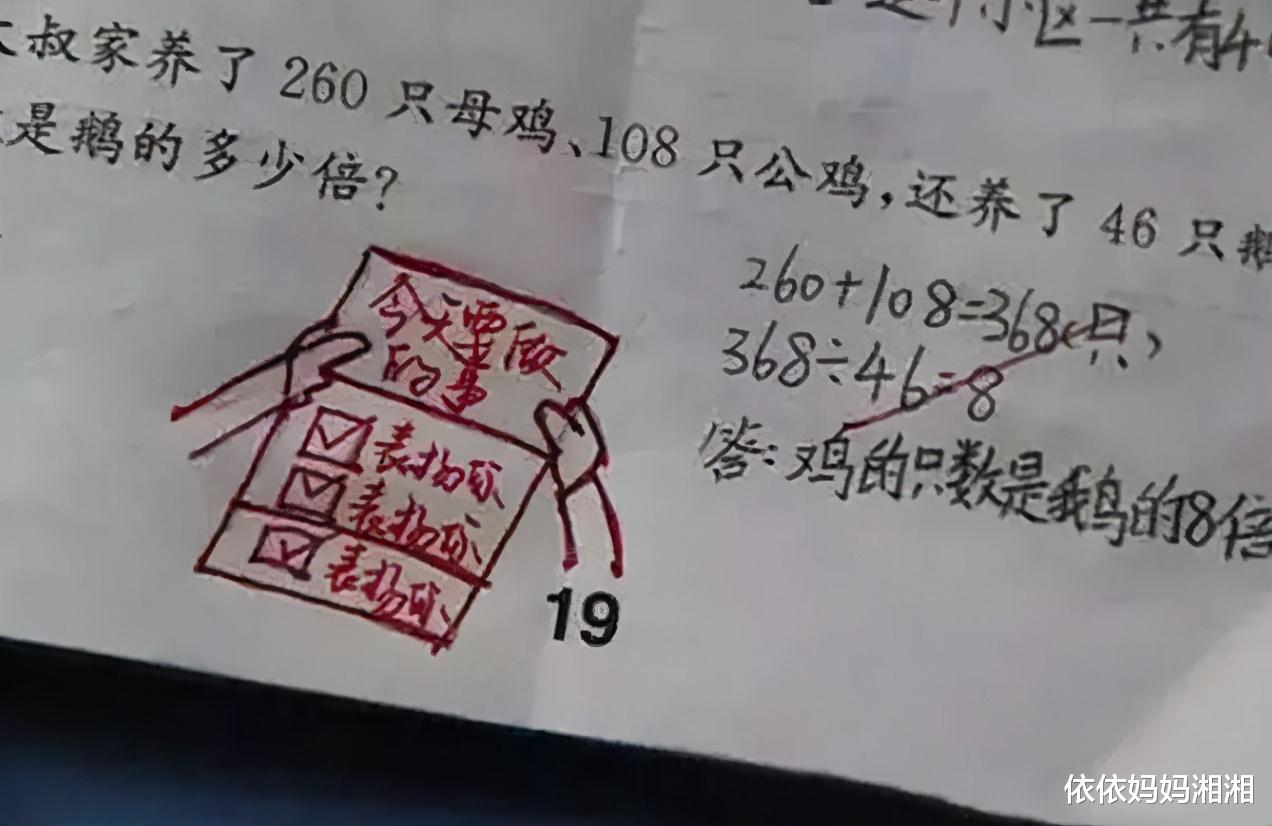 是个小区一共有4
大叔家养了 260 只母鸡、108 只公鸡，还养了 46 只鹅
是鹅的多少倍？
260+108=368(只)
368÷46=8
答：鸡的只数是鹅的8倍
今天要做
的事
表扬你
表扬你
表扬你
19
依依妈妈湘湘